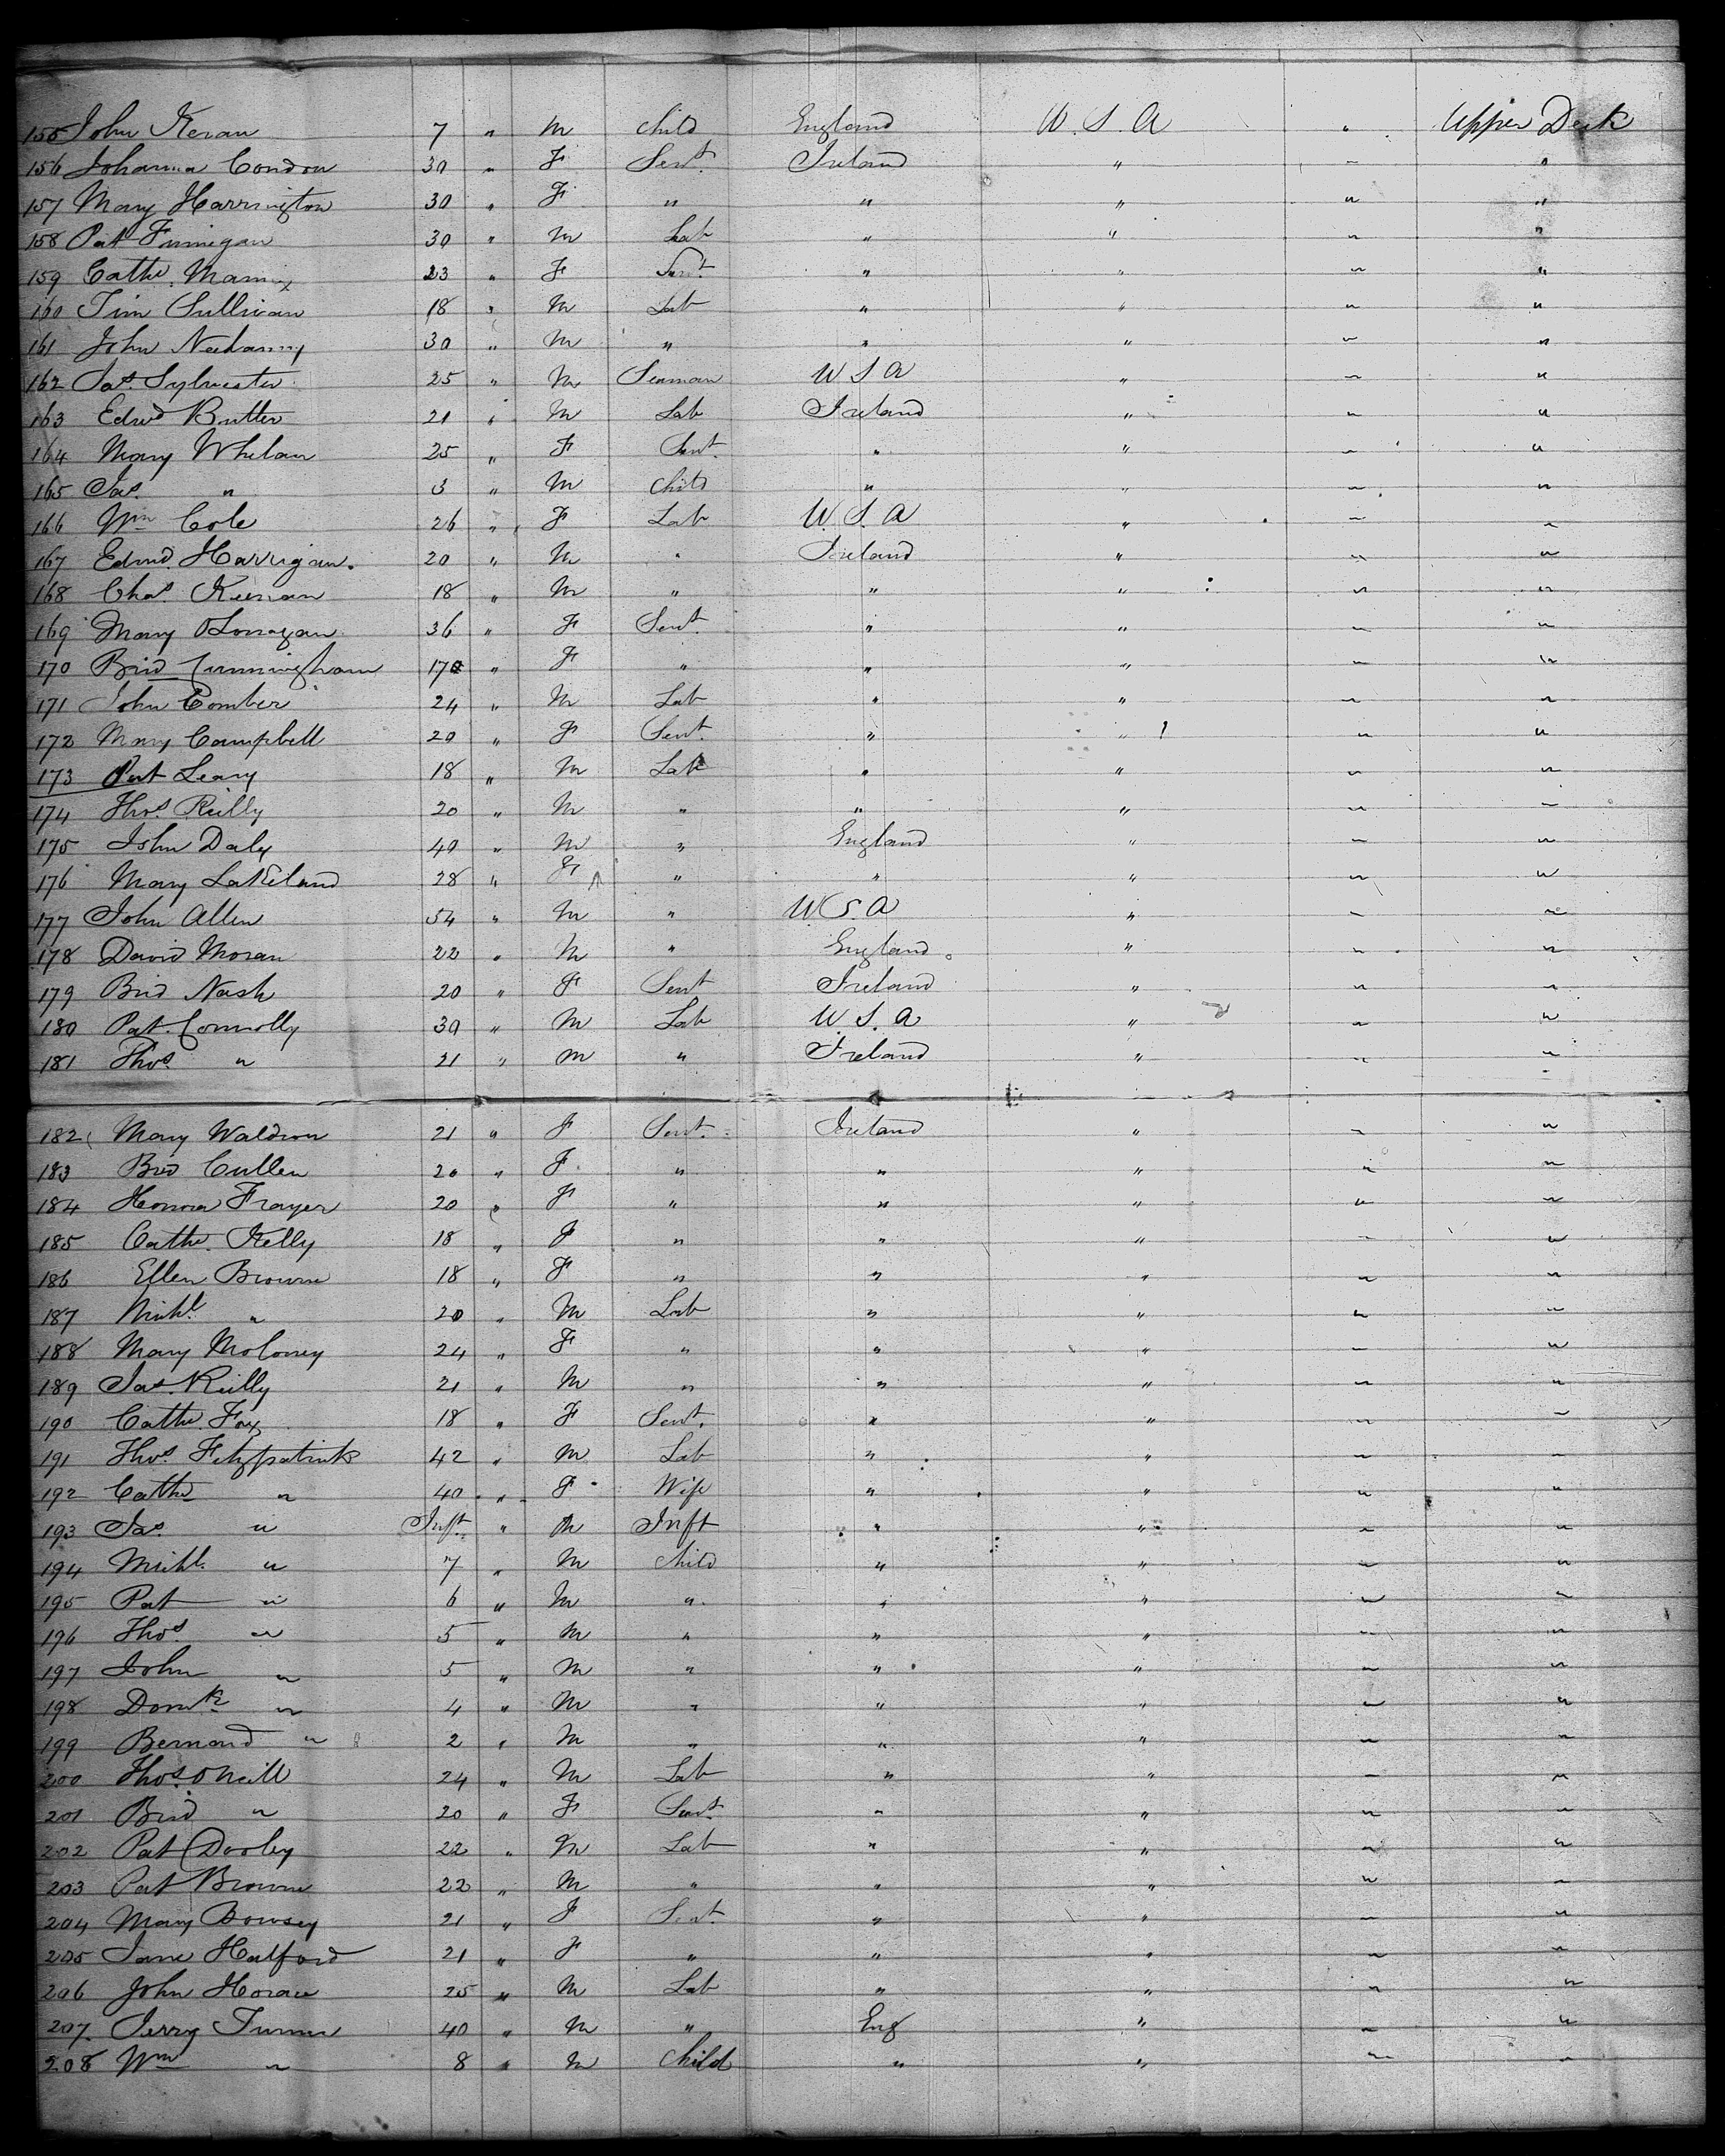 155 John Keran 7 " M Child England U.S.A " Upper Deck
156 Johanna Condon 30 " F Servt. Ireland " " "
157 Mary Harrington 30 " F " " " " "
158 Pat Finnegan 30 " M Lab " " " "
159 Cathe. Mannix 23 " F Servt " " " "
160 Tim Sullivan 18 " M Lab " " " "
161 John 30 " M " " " " "
162 Jas. Sylvester 25 " M Seaman U S A " " "
163 Edwd Butler 21 " M Lab Ireland " " "
164 Mary Whelan 25 " F Servt. " " " "
165 Jas. " 3 " M Child " " " "
166 Wm Cole 26 " F Lab U.S.A " " "
167 Edmd. Harrigan. 20 " M " Ireland " " "
168 Chas. Keenan 18 " M " " " " "
169 Mary 36 " F Servt. " " " "
170 Brid Cunningham 17 " F " " " " "
171 John Comber 24 " M Lab " " " "
172 Mary Campbell 20 " F Servt. " " " "
173 Pat Leary 18 " M Lab " " " "
174 Thos. Reilly 20 " M " " " " "
175 John Daly 40 " M " England " " "
176 Mary Lakeland 28 " F " " " " "
177 John Allen 54 " M " U S A " " "
178 David Moran 22 " M " England " " "
179 Brid Nash 20 " F Servt Ireland " " "
180 Pat. Connolly 30 " M Lab U.S.A " " "
181 Thos. " 21 " M " Ireland " " "
182 Mary Waldron 21 " F Servt. Ireland " " "
183 Brid Cullen 20 " F " " " " "
184 Honora Frayer 20 " F " " " " "
185 Cathe. Kelly 18 " F " " " " "
186 Ellen Browne 18 " F " " " " "
187 Michl. " 20 " M Lab " " " "
188 Mary Moloney 24 " F " " " " "
189 Jas. Reilly 21 " M " " " " "
190 Cathe. Fox 18 " F Servt. " " " "
191 Thos. Fitzpatrick 42 " M Lab " " " "
192 Cathe " 40 " F Wife " " " "
193 Jas. " Inft. " M Inft " " " "
194 Michl. " 7 " M Child " " " "
195 Pat " 6 " M " " " " "
196 Thos. " 5 " M " " " " "
197 John " 5 " M " " " " "
198 Domk. " 4 " M " " " " "
199 Bernard " 2 " M " " " " "
200 Thos. O'Neill 24 " M Lab " " " "
201 Brid " 20 " F Servt. " " " "
202 Pat Dooley 22 " M Lab " " " "
203 Pat Browne 22 " M " " " " "
204 Mary Bowsey 21 " F Servt. " " " "
205 Jane Halford 21 " F " " " " "
206 John Horan 25 " M Lab " " " "
207. Jerry Turner 40 " M " Eng " " "
208 Wm " 8 " M Child " " " "